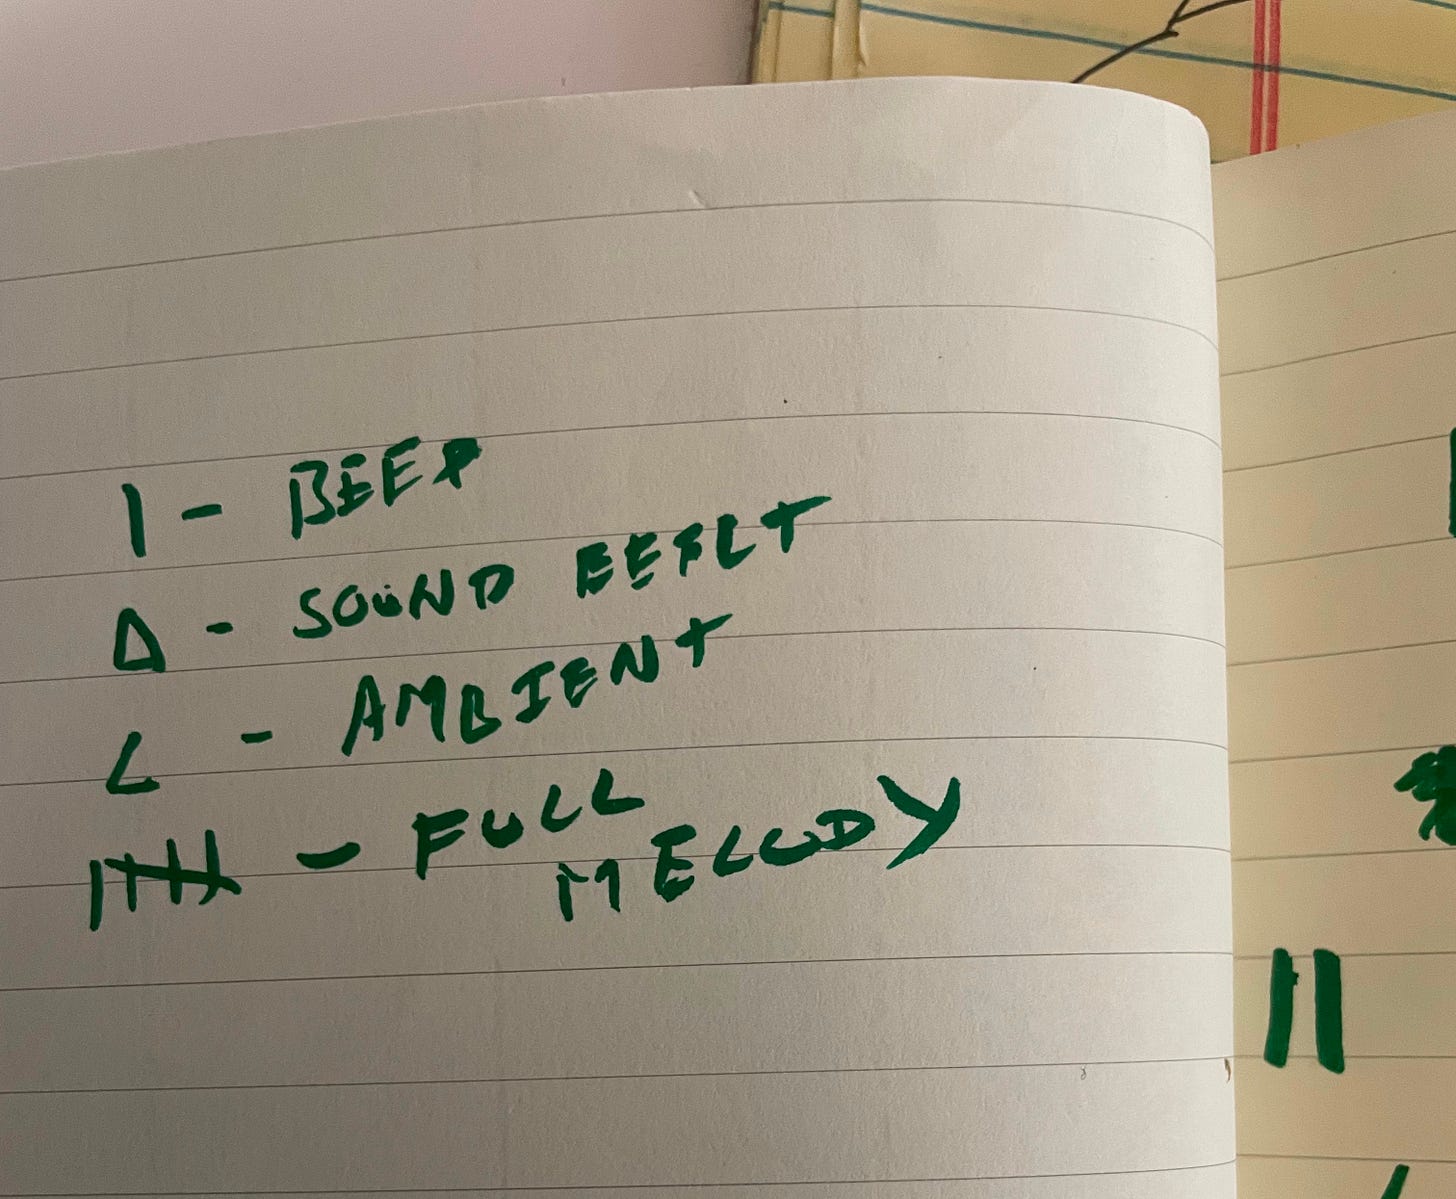 | - BEEP
Δ - SOUND EFFECT
L - AMBIENT
卌 - FULL
MELODY
||